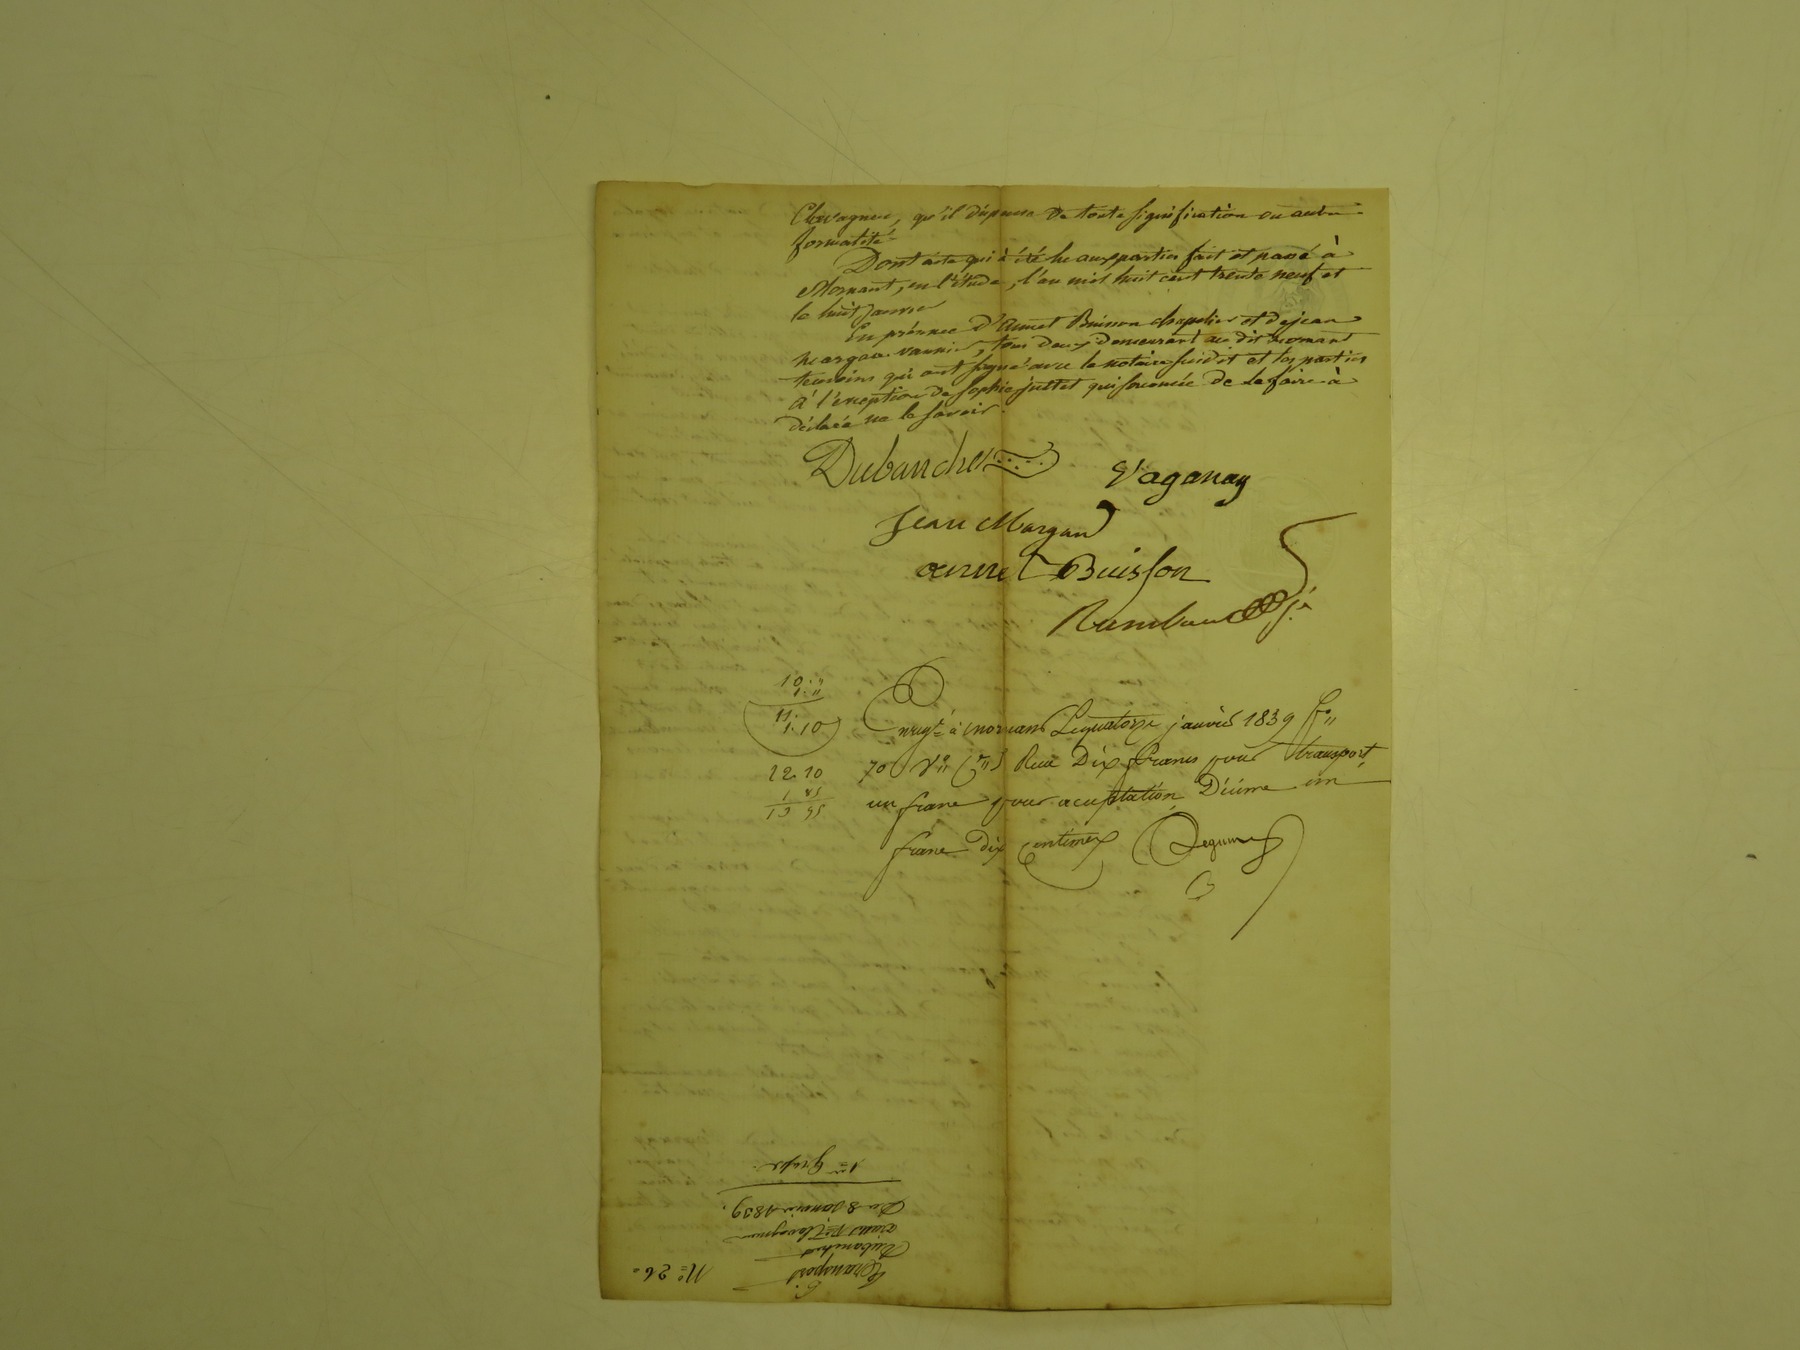 Clavagnier, qu'il dispense de toute signification ou autre
formalité.
Dont acte qui à été lu aux parties fait et passé à
Mornant, en l'étude, l'an mil huit cent trente neuf et
le huit janvier
En présence d'Annet Buisson chapelier et de jean
margan vannier, tous deux demeurant au dit mornant
temoins qui ont signé avec le notaire susdit et les parties
à l'exception de Sophie juttet qui sommée de le faire à
déclaré ne le savoir.
Dubanchet
Vaganay
Jean Margan
annet Buisson
Rambaud
10 : "
1 : "
11 :
1 . 10
12 10
1 85
13 95
Enregt. à mornant Le quatorze janvier 1839 fo.
70 Vo. Reçu Dix francs pour transport
un franc pour acceptation Décime un
franc Dix Centimes
No. 26
Transport
Dubanchet
Clavagnier
Du 8 Janvier 1839.
1re Grosse.